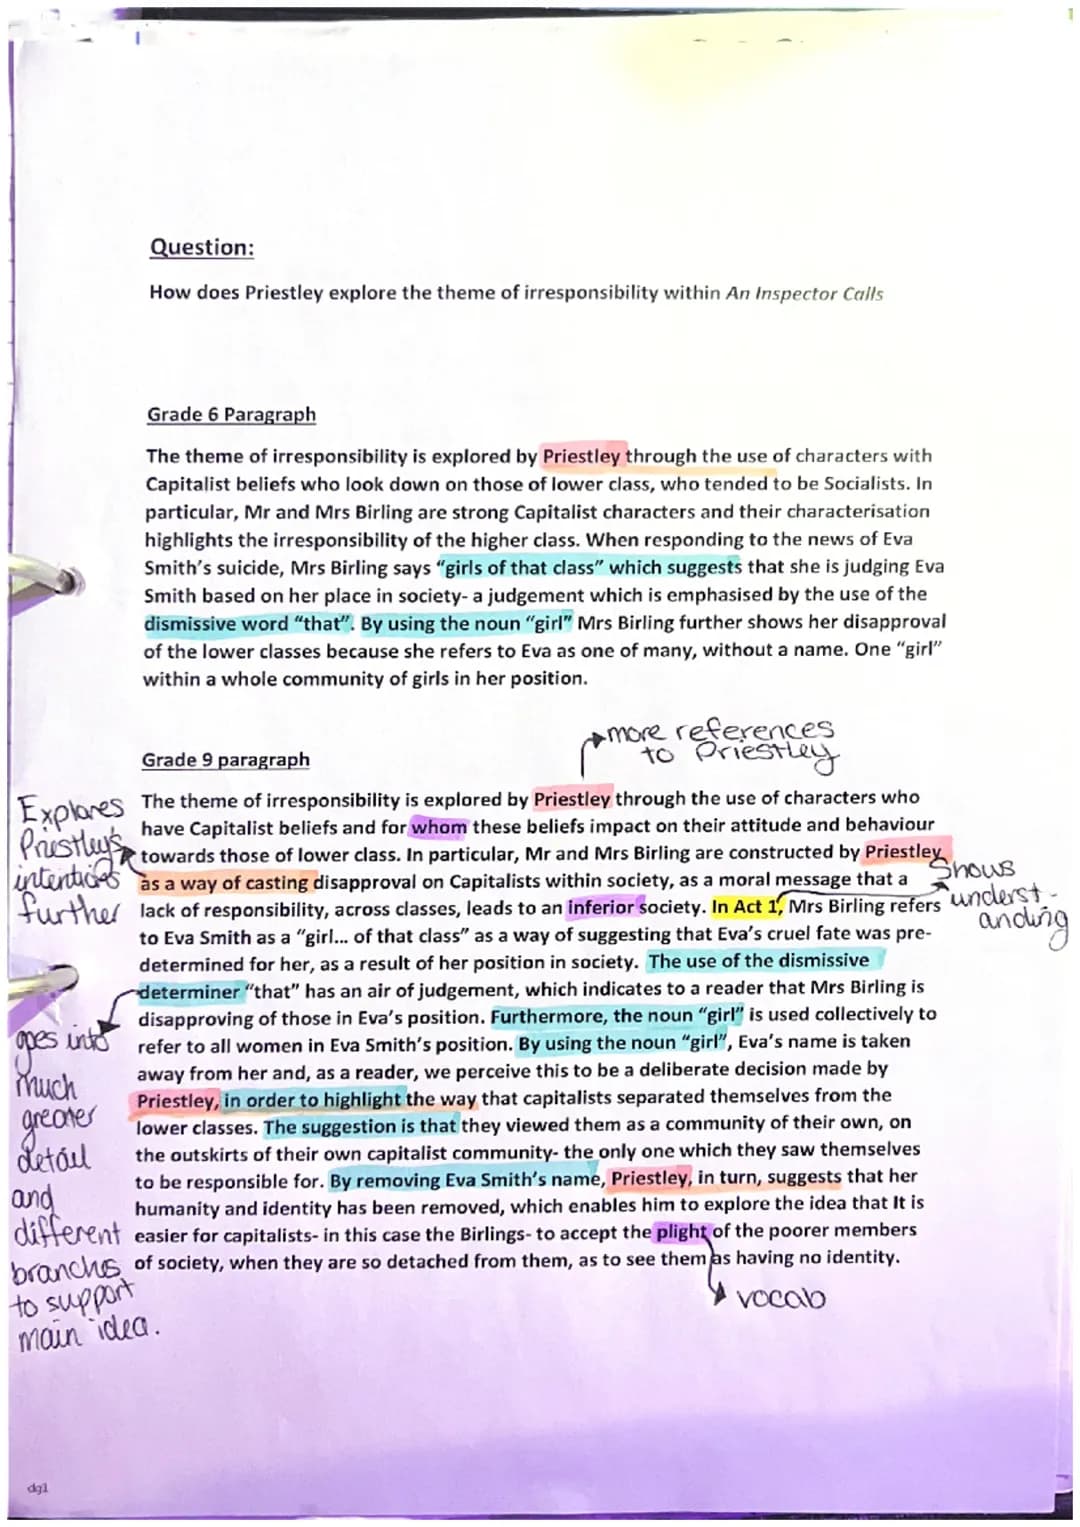 Question:
How does Priestley explore the theme of irresponsibility within An Inspector Calls
Grade 6 Paragraph
The theme of irresponsibility is explored by Priestley through the use of characters with
Capitalist beliefs who look down on those of lower class, who tended to be Socialists. In
particular, Mr and Mrs Birling are strong Capitalist characters and their characterisation
highlights the irresponsibility of the higher class. When responding to the news of Eva
Smith's suicide, Mrs Birling says "girls of that class" which suggests that she is judging Eva
Smith based on her place in society- a judgement which is emphasised by the use of the
dismissive word "that". By using the noun "girl" Mrs Birling further shows her disapproval
of the lower classes because she refers to Eva as one of many, without a name. One "girl"
within a whole community of girls in her position.
more references
to Priestley
Grade 9 paragraph
The theme of irresponsibility is explored by Priestley through the use of characters who
have Capitalist beliefs and for whom these beliefs impact on their attitude and behaviour
towards those of lower class. In particular, Mr and Mrs Birling are constructed by Priestley
as a way of casting disapproval on Capitalists within society, as a moral message that a
lack of responsibility, across classes, leads to an inferior society. In Act 1, Mrs Birling refers
to Eva Smith as a "girl... of that class" as a way of suggesting that Eva's cruel fate was pre-
determined for her, as a result of her position in society. The use of the dismissive
determiner "that" has an air of judgement, which indicates to a reader that Mrs Birling is
disapproving of those in Eva's position. Furthermore, the noun "girl" is used collectively to
refer to all women in Eva Smith's position. By using the noun "girl", Eva's name is taken
away from her and, as a reader, we perceive this to be a deliberate decision made by
Priestley, in order to highlight the way that capitalists separated themselves from the
lower classes. The suggestion is that they viewed them as a community of their own, on
the outskirts of their own capitalist community- the only one which they saw themselves
to be responsible for. By removing Eva Smith's name, Priestley, in turn, suggests that her
humanity and identity has been removed, which enables him to explore the idea that It is
easier for capitalists- in this case the Birlings- to accept the plight of the poorer members
of society, when they are so detached from them, as to see them as having no identity.
Explores
Priestley's
intentions
further
Shows
underst-
anding
goes into
much
greater
detail
and
different
branches
to support
main idea.
vocab
dg1